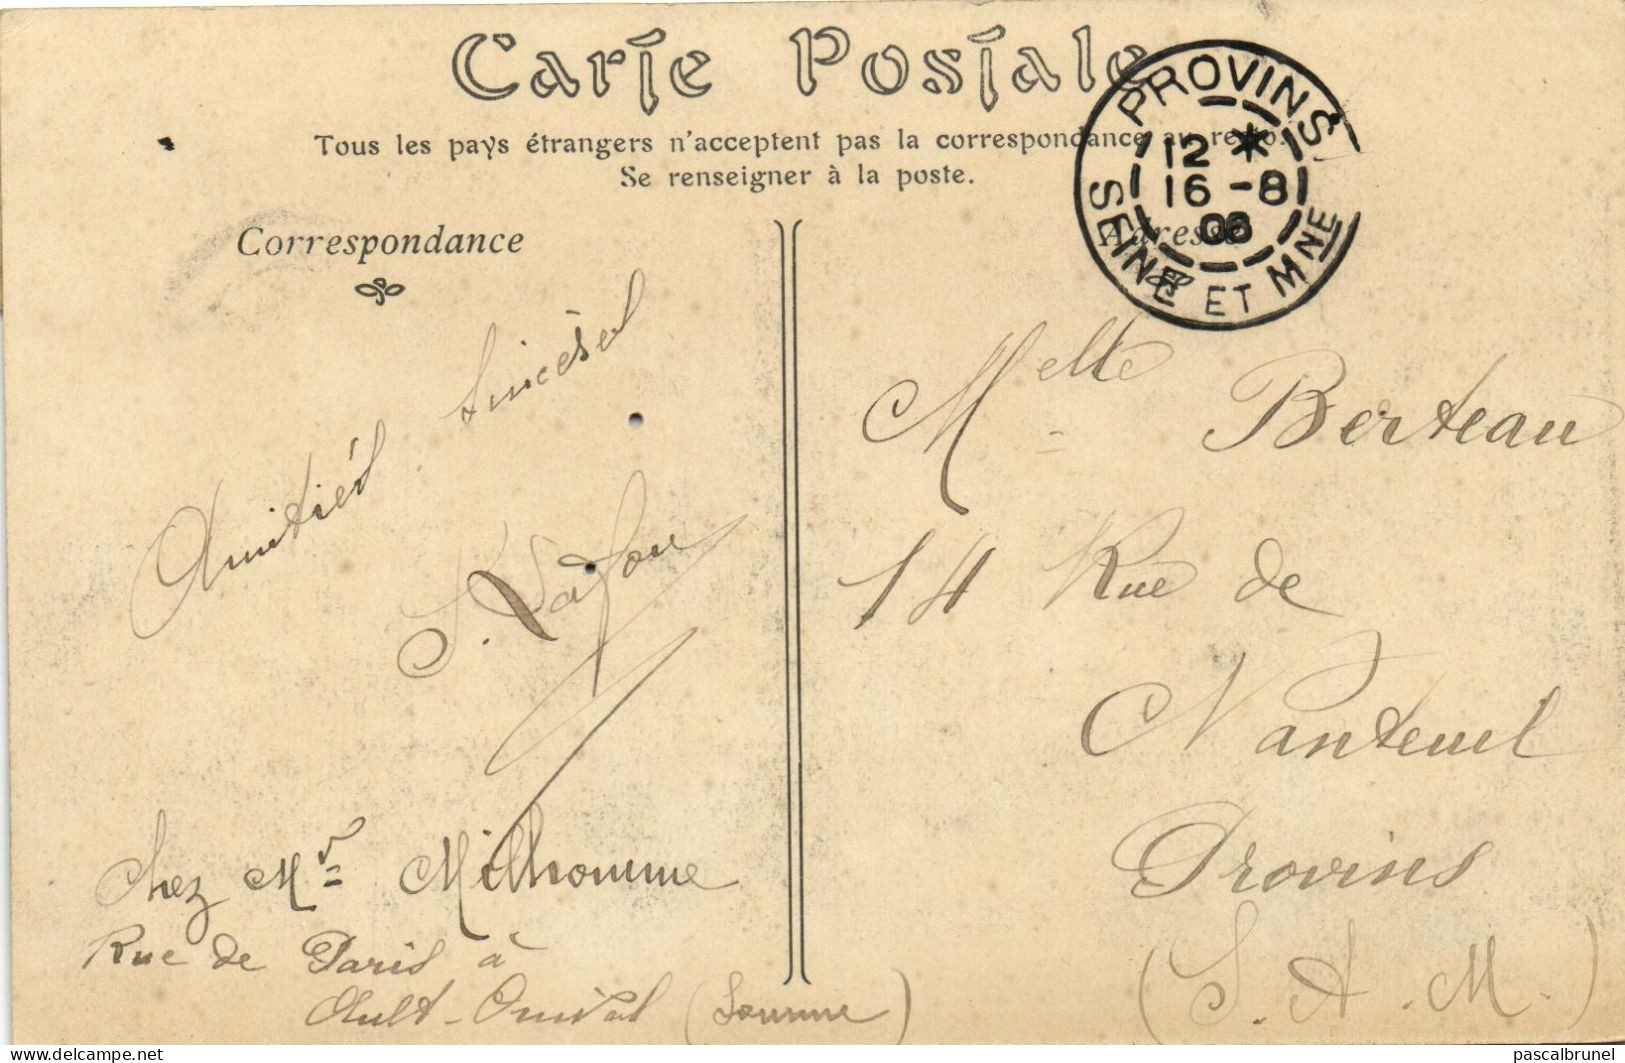 Carte Postale
Tous les pays étrangers n'acceptent pas la correspondance au recto.
Se renseigner à la poste.
Correspondance
Adresse
PROVINS
12 *
16 -8
06
SEINE ET MNE
Amitiés sincères
S. Lafou
Chez Mr Milhomme
Rue de Paris à
Ault-Onival (Somme)
Melle Berteau
14 Rue de
Nanteuil
Provins
(S. A. M.)
pascalbrunel
delcampe.net